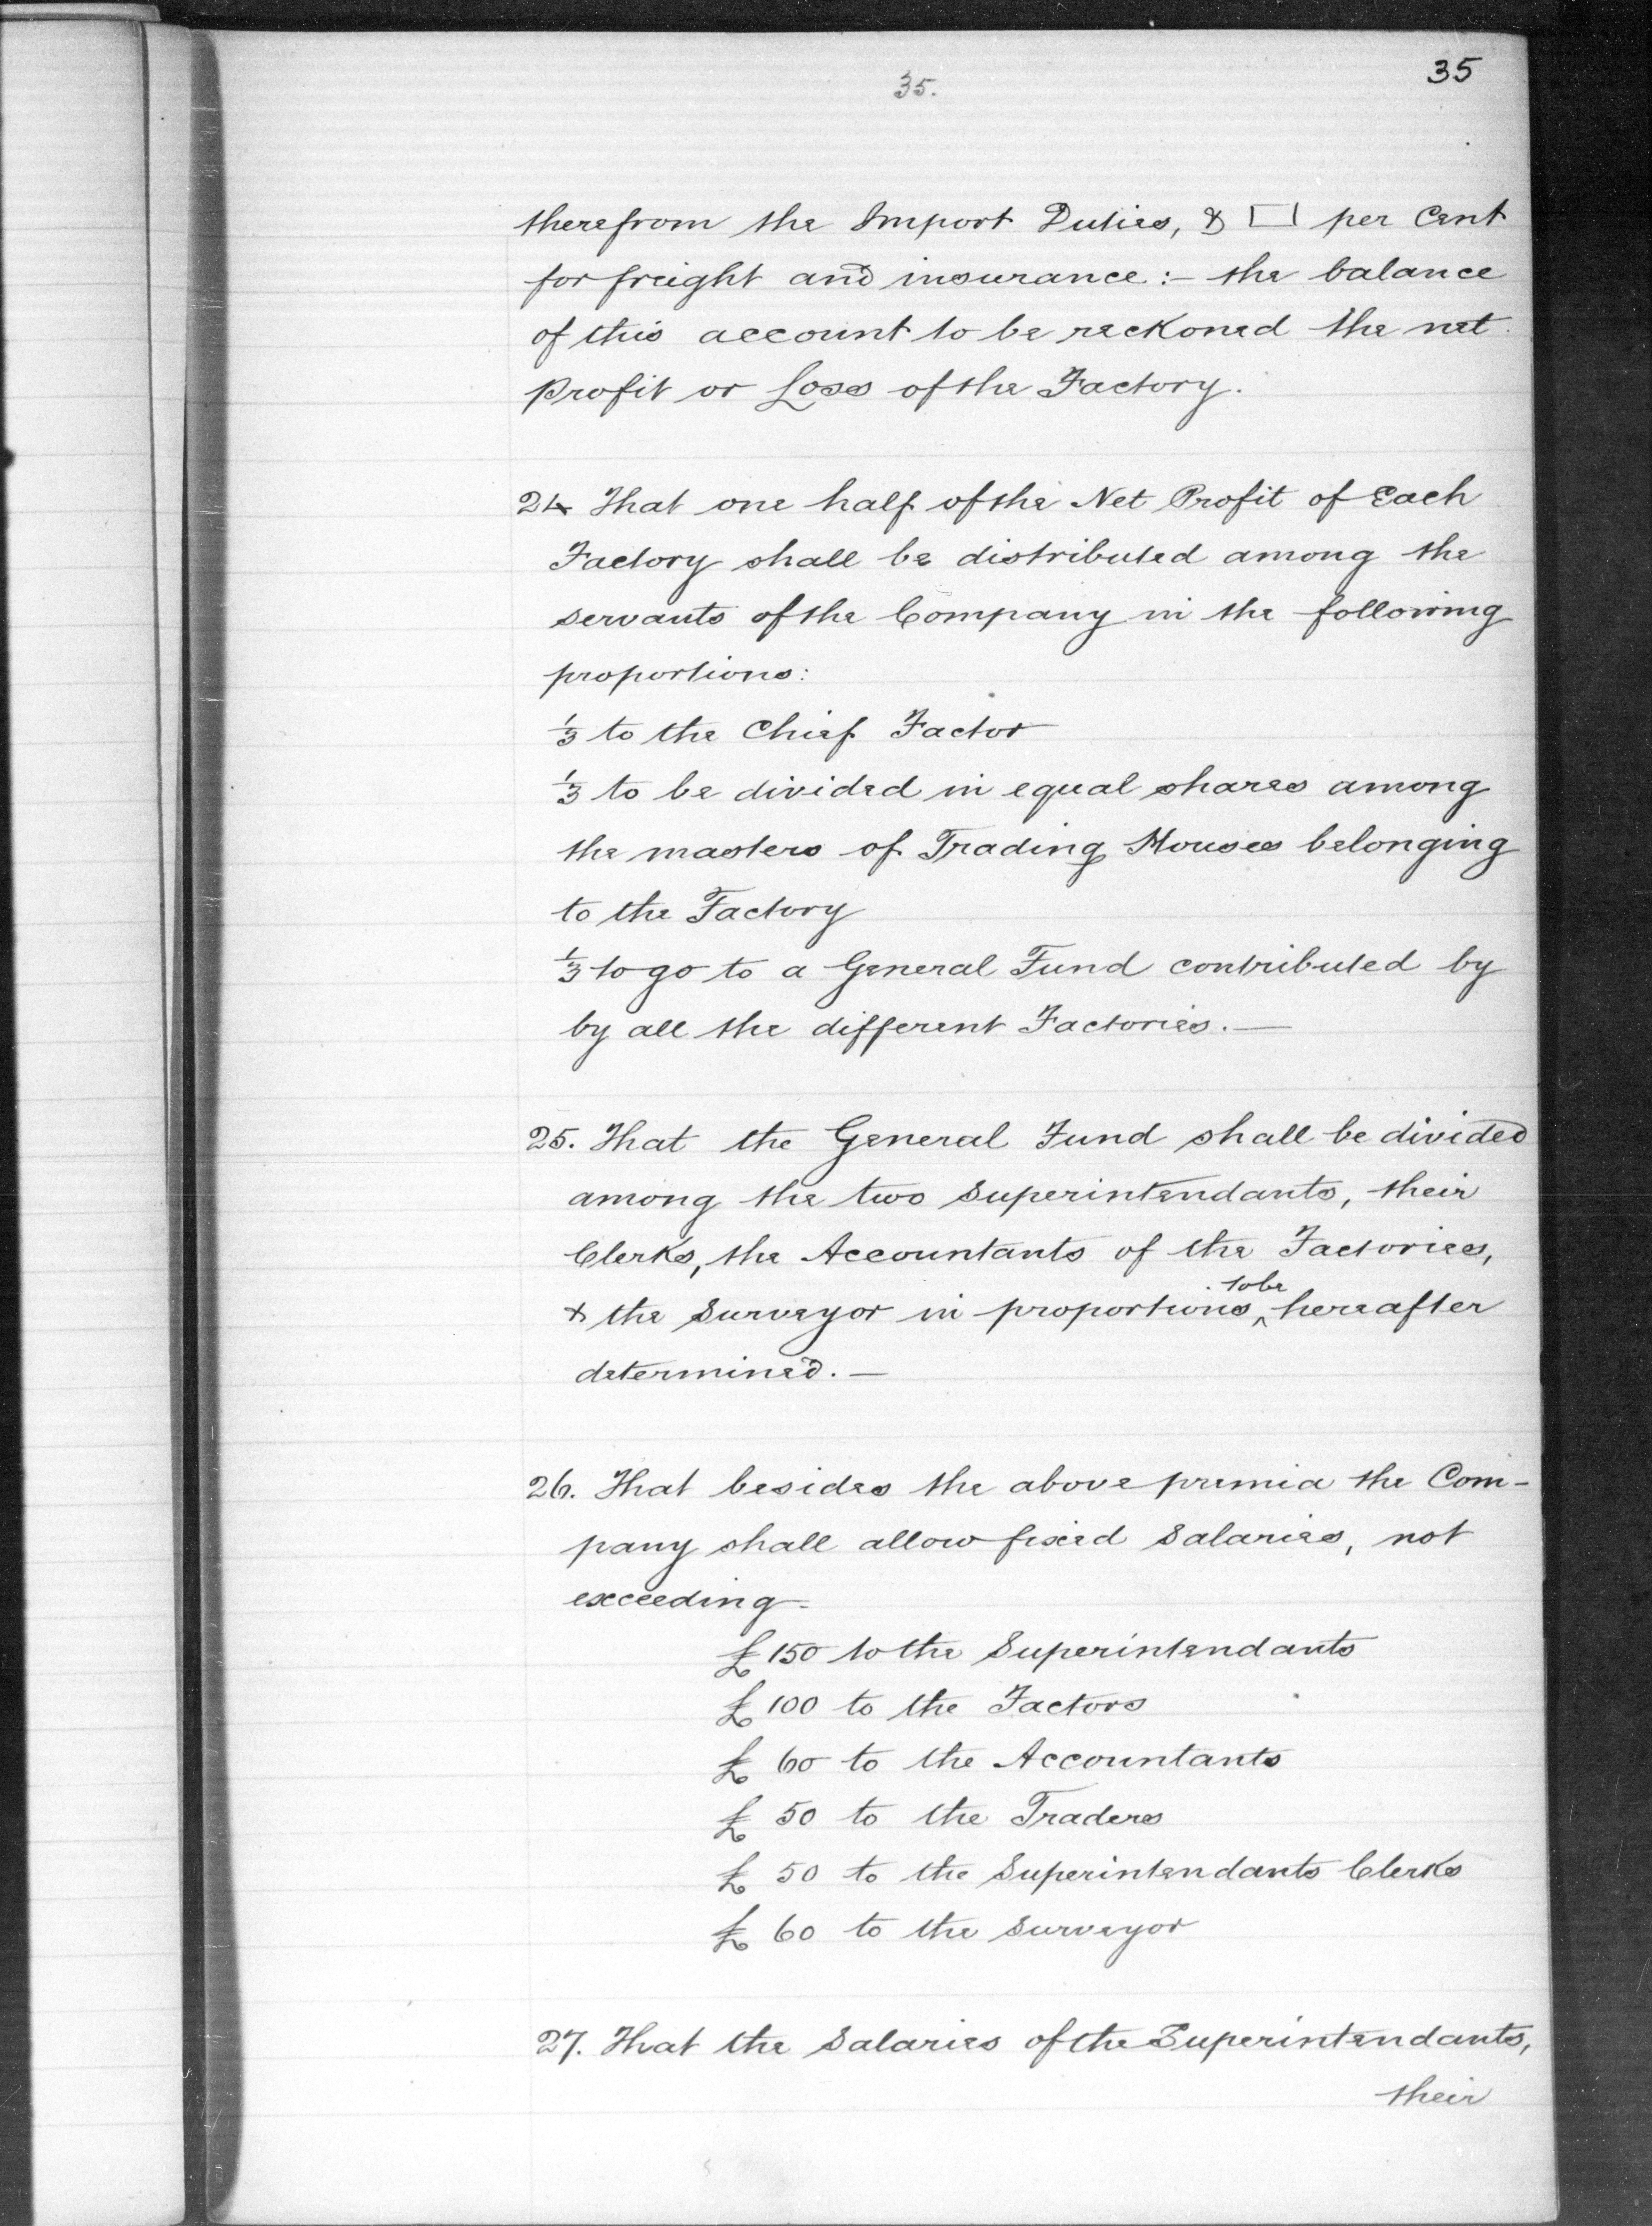 35.
35
therefrom the Import Duties, & □ per Cent
for freight and insurance:- the balance
of this account to be reckoned the net
Profit or Loss of the Factory.
24 That one half of the Net Profit of Each
Factory shall be distributed among the
servants of the Company in the following
proportions:
1/3 to the Chief Factor
1/3 to be divided in equal shares among
the masters of Trading Houses belonging
to the Factory
1/3 to go to a General Fund contributed by
by all the different Factories. —
25. That the General Fund shall be divided
among the two Superintendants, their
Clerks, the Accountants of the Factories,
to be
& the Surveyor in proportions ^ hereafter
determined. —
26. That besides the above premia the Com-
pany shall allow fixed Salaries, not
exceeding-
£150 to the Superintendants
£100 to the Factors
£ 60 to the Accountants
£ 50 to the Traders
£ 50 to the Superintendants Clerks
£ 60 to the Surveyor
27. That the Salaries of the Superintendants,
their